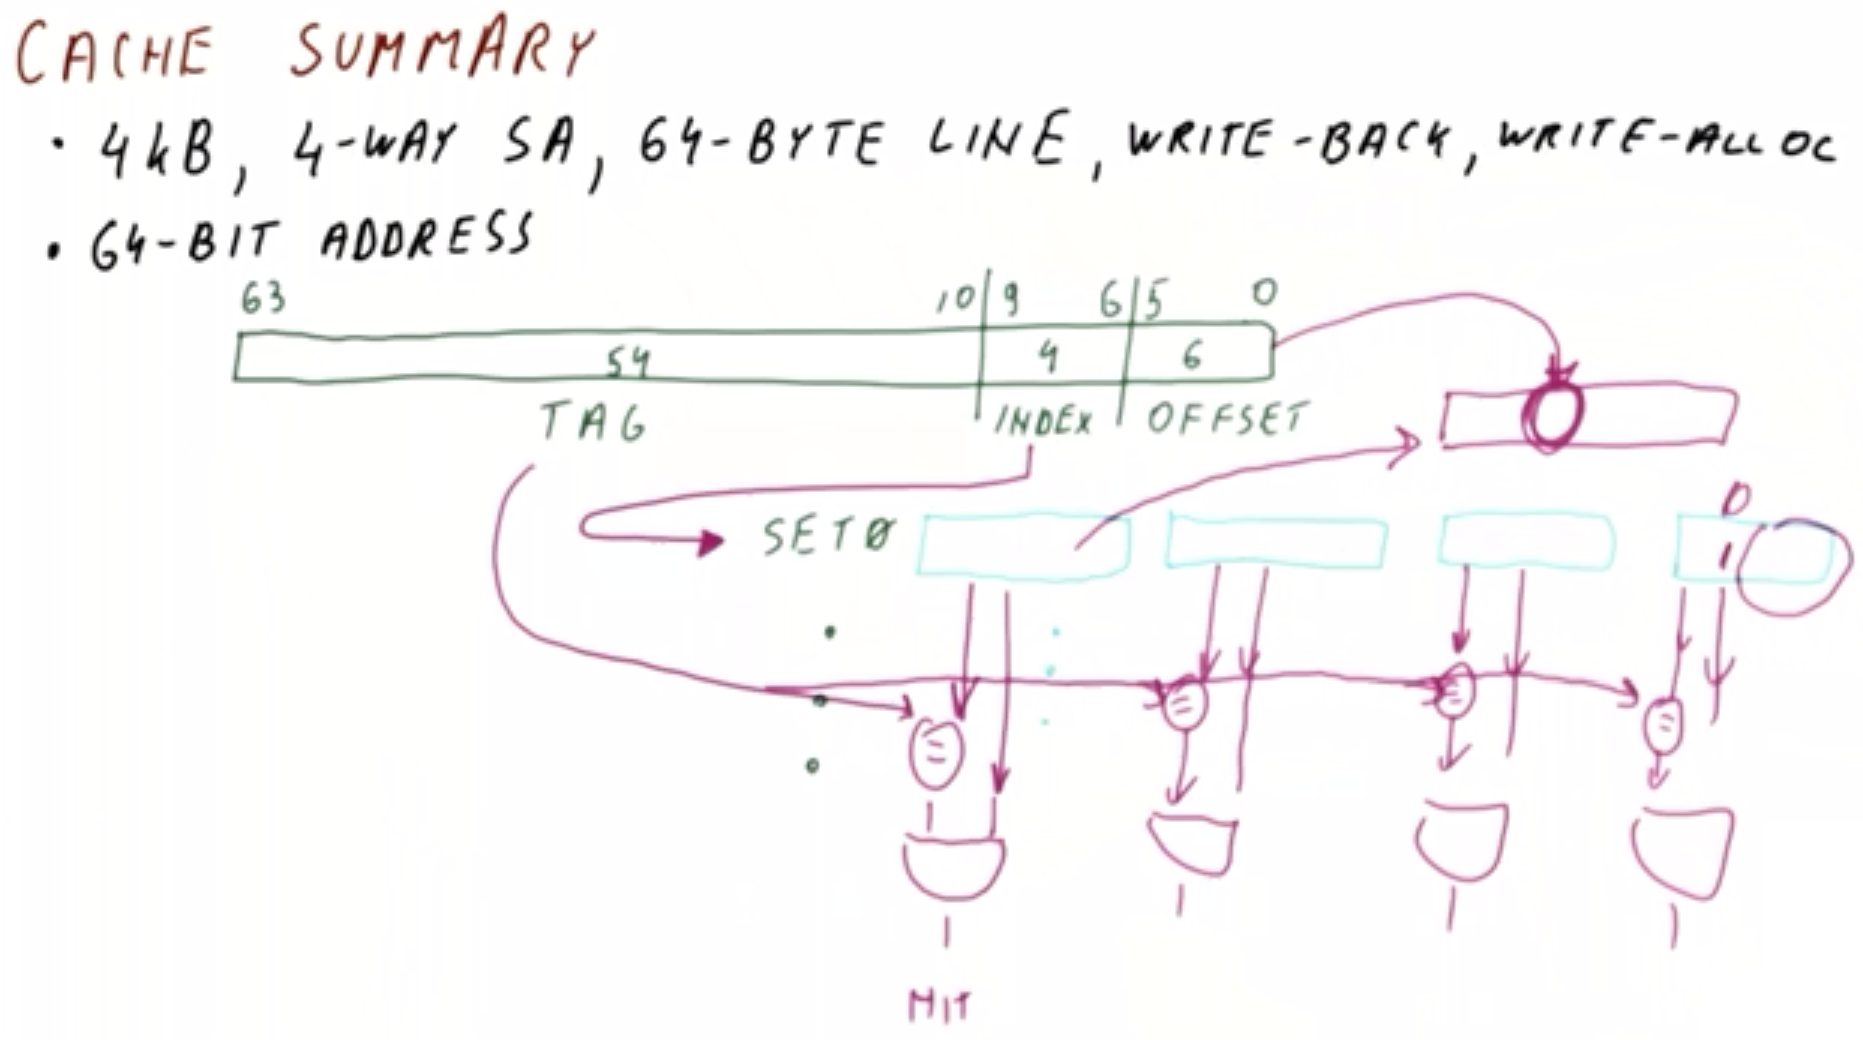 CACHE SUMMARY
• 4kB, 4-WAY SA, 64-BYTE LINE, WRITE-BACK, WRITE-ALLOC
• 64-BIT ADDRESS
63 10 9 6 5 0
54 4 6
TAG INDEX OFFSET
0
SET0
1
HIT